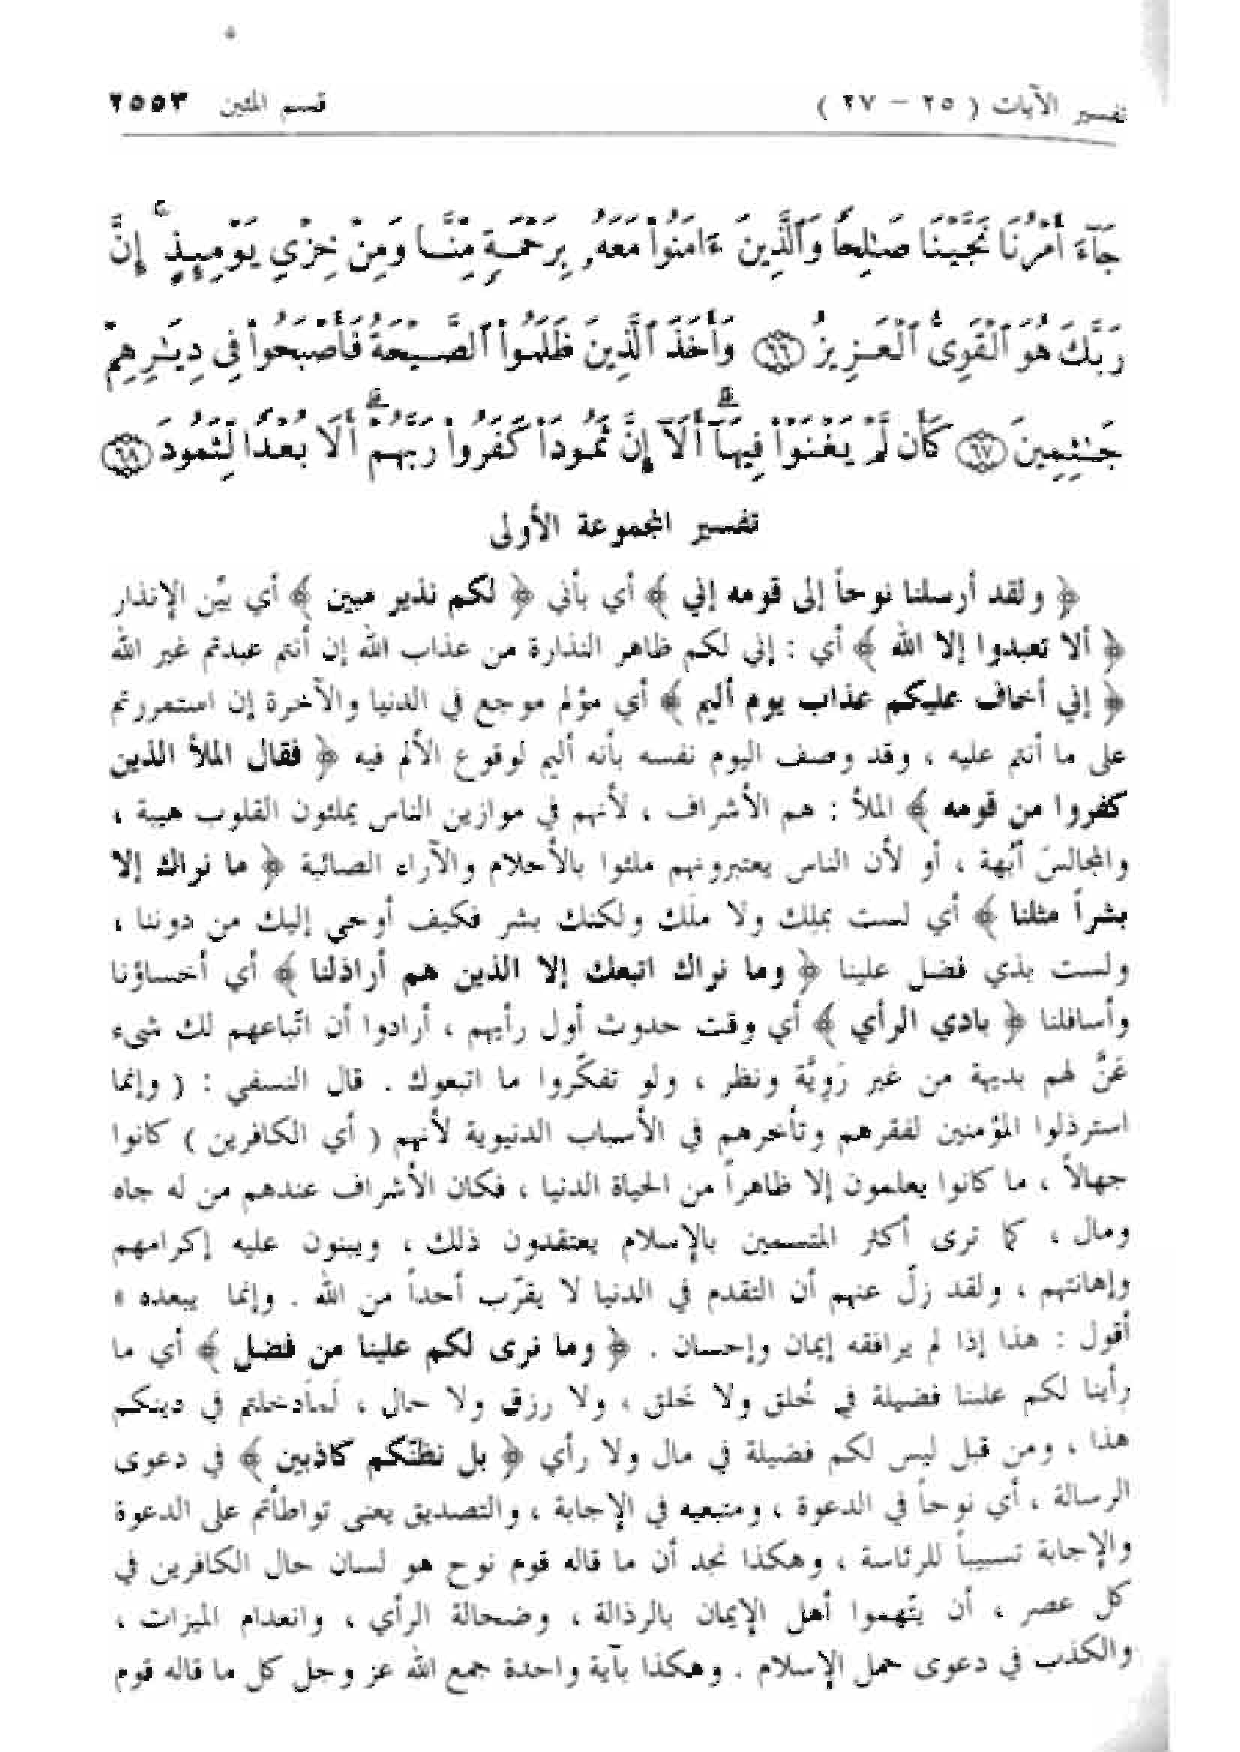 تفسير الآيات ( ٢٥ – ٢٧ ) قسم المئين ٢٥٥٣
جَآءَ أَمْرُنَا نَجَّيْنَا صَـٰلِحًا وَٱلَّذِينَ ءَامَنُوا۟ مَعَهُۥ بِرَحْمَةٍ مِّنَّا وَمِنْ خِزْىِ يَوْمِئِذٍ ۗ إِنَّ
رَبَّكَ هُوَ ٱلْقَوِىُّ ٱلْعَزِيزُ ﴿٦٦﴾ وَأَخَذَ ٱلَّذِينَ ظَلَمُوا۟ ٱلصَّيْحَةُ فَأَصْبَحُوا۟ فِى دِيَـٰرِهِمْ
جَـٰثِمِينَ ﴿٦٧﴾ كَأَن لَّمْ يَغْنَوْا۟ فِيهَآ ۗ أَلَآ إِنَّ ثَمُودَا۟ كَفَرُوا۟ رَبَّهُمْ ۗ أَلَا بُعْدًا لِّثَمُودَ ﴿٦٨﴾
تفسير المجموعة الأولى
﴿ ولقد أرسلنا نوحاً إلى قومه إني ﴾ أي بأني ﴿ لكم نذير مبين ﴾ أي بيّن الإنذار
﴿ ألا تعبدوا إلا الله ﴾ أي : إني لكم ظاهر النذارة من عذاب الله إن أنتم عبدتم غير الله
﴿ إني أخاف عليكم عذاب يوم أليم ﴾ أي مؤلم موجع في الدنيا والآخرة إن استمررتم
على ما أنتم عليه ، وقد وصف اليوم نفسه بأنه أليم لوقوع الألم فيه ﴿ فقال الملأ الذين
كفروا من قومه ﴾ الملأ : هم الأشراف ، لأنهم في موازين الناس يملئون القلوب هيبة ،
والمجالسَ أبّهة ، أو لأن الناس يعتبرونهم ملئوا بالأحلام والآراء الصائبة ﴿ ما نراك إلا
بشراً مثلنا ﴾ أي لست بملِك ولا ملَك ولكنك بشر فكيف أوحي إليك من دوننا ،
ولست بذي فضل علينا ﴿ وما نراك اتبعك إلا الذين هم أراذلنا ﴾ أي أخساؤنا
وأسافلنا ﴿ بادي الرأي ﴾ أي وقت حدوث أول رأيهم ، أرادوا أن اتّباعهم لك شيء
عَنَّ لهم بديهة من غير رَوِيَّة ونظر ، ولو تفكّروا ما اتبعوك . قال النسفي : ( وإنما
استرذلوا المؤمنين لفقرهم وتأخرهم في الأسباب الدنيوية لأنهم ( أي الكافرين ) كانوا
جهالاً ، ما كانوا يعلمون إلا ظاهراً من الحياة الدنيا ، فكان الأشراف عندهم من له جاه
ومال ، كما ترى أكثر المتسمين بالإسلام يعتقدون ذلك ، ويبنون عليه إكرامهم
وإهانتهم ، ولقد زلّ عنهم أن التقدم في الدنيا لا يقرّب أحداً من الله . وإنما يبعده »
أقول : هذا إذا لم يرافقه إيمان وإحسان . ﴿ وما نرى لكم علينا من فضل ﴾ أي ما
رأينا لكم علينا فضيلة في خُلق ولا خَلق ، ولا رزق ولا حال ، لَمادخلتم في دينكم
هذا ، ومن قبل ليس لكم فضيلة في مال ولا رأي ﴿ بل نظنّكم كاذبين ﴾ في دعوى
الرسالة ، أي نوحاً في الدعوة ، ومتبعيه في الإجابة ، والتصديق يعنى تواطأتم على الدعوة
والإجابة تسبيباً للرئاسة ، وهكذا نجد أن ما قاله قوم نوح هو لسان حال الكافرين في
كل عصر ، أن يتّهموا أهل الإيمان بالرذالة ، وضحالة الرأي ، وانعدام الميزات ،
والكذب في دعوى حمل الإسلام . وهكذا بآية واحدة جمع الله عز وجل كل ما قاله قوم